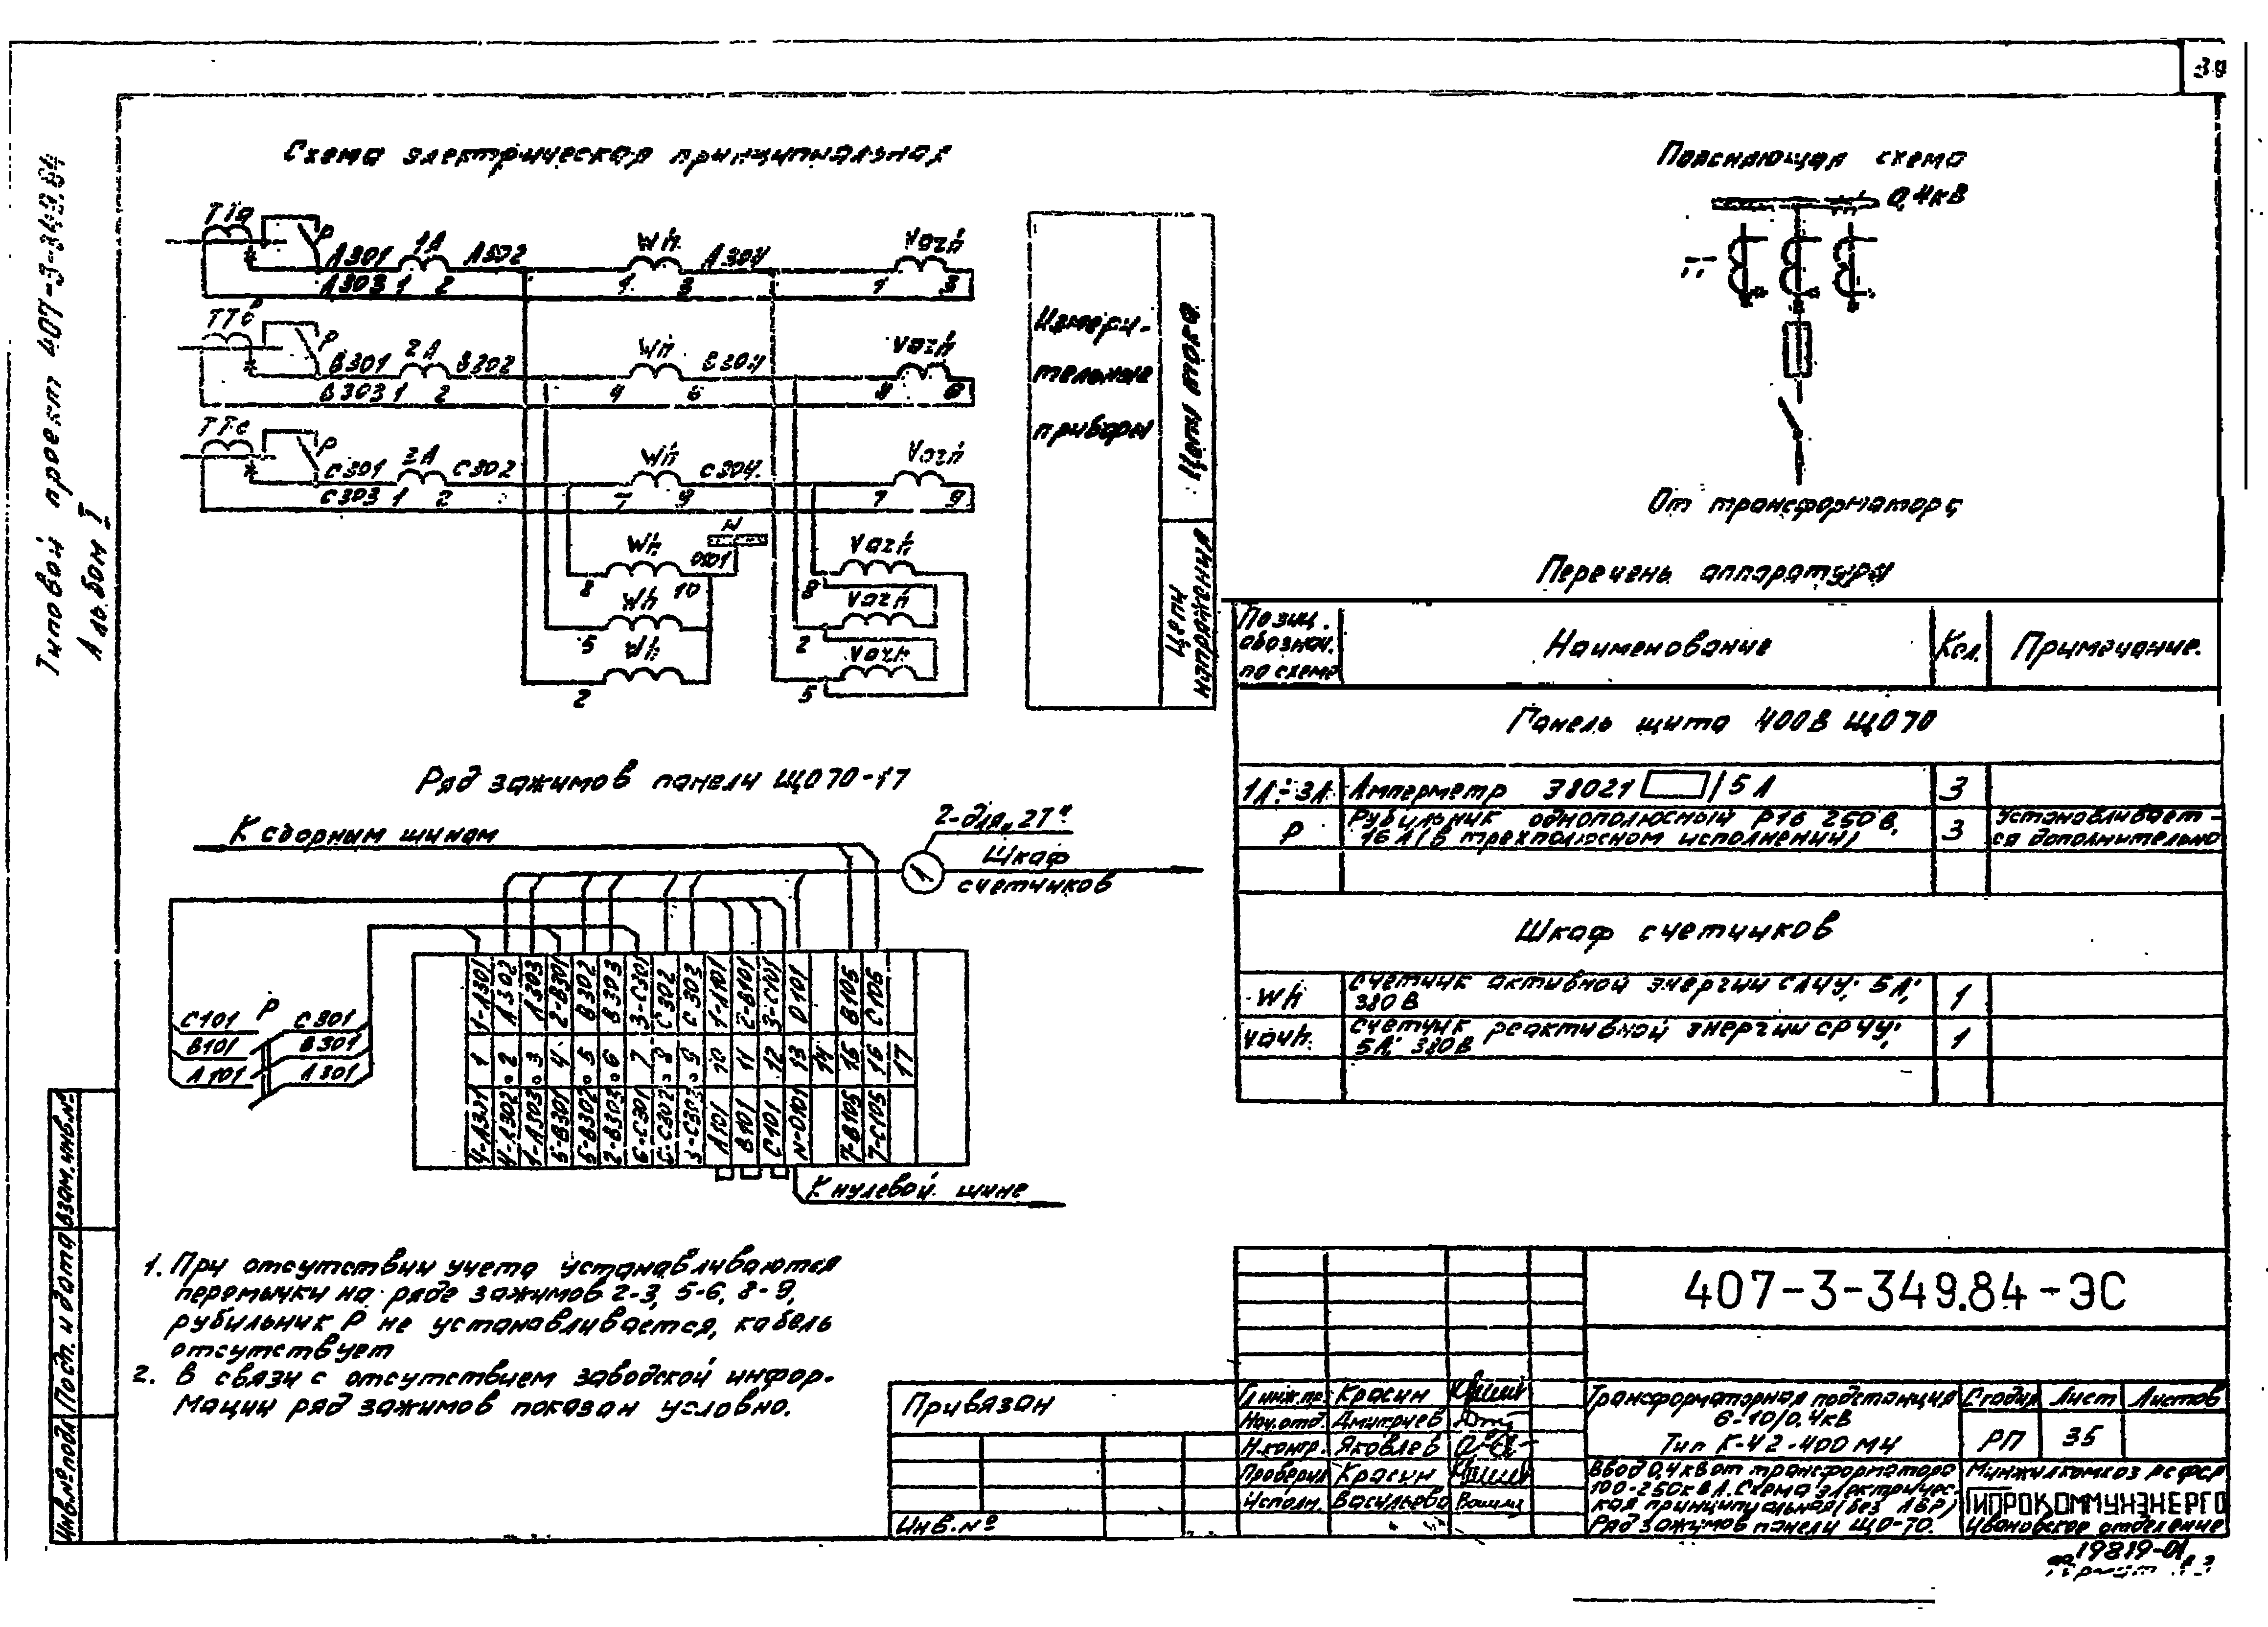 39
Типовой проект 407-3-349.84
Альбом I
Схема электрическая принципиальная
ТТа
Р
А301
1А
А302
Wh
А304
Varh
А303
1
2
1
3
1
3
ТТв
Р
В301
2А
В302
Wh
В304
Varh
В303
1
2
4
6
4
6
ТТс
Р
С301
3А
С302
Wh
С304
Varh
С303
1
2
7
9
7
9
N
Wh
0101
Varh
8
10
8
Wh
Varh
5
2
Wh
Varh
2
5
Измери-
тельные
приборы
Цепи тока
Цепи
напряжения
Поясняющая схема
0,4кВ
ТТ
От трансформатора
Перечень аппаратуры
Позиц.
обознач.
по схеме
Наименование
Кол.
Примечание.
Панель щита 400В ЩО70
1А÷3А
Амперметр Э8021 /5А
3
Р
Рубильник однополюсный Р16 250В,
16А (В трехполюсном исполнении)
3
Устанавливает-
ся дополнительно
Шкаф счетчиков
Wh
Счетчик активной энергии СА4У; 5А;
380В
1
Varh.
Счетчик реактивной энергии СР4У;
5А; 380В
1
Ряд зажимов панели ЩО70-17
К сборным шинам
2-для „2Т"
1
Шкаф
счетчиков
С101
Р
С301
В101
В301
А101
А301
1-А301
А302
А303
2-В301
В302
В303
3-С301
С302
С303
1-А101
2-В101
3-С101
0101
В105
С105
1
2
3
4
5
6
7
8
9
10
11
12
13
14
15
16
17
4-А301
4-А302
1-А303
5-В301
5-В302
2-В303
6-С301
6-С302
3-С303
А101
В101
С101
N-0101
7-В105
7-С105
К нулевой шине
1. При отсутствии учета устанавливаются
перемычки на ряде зажимов 2-3, 5-6, 8-9,
рубильник Р не устанавливается, кабель
отсутствует
2. В связи с отсутствием заводской инфор-
мации ряд зажимов показан условно.
Взам.инв.№
Подп. и дата
Инв.№подл.
Привязан
Инв.№
Гл.инж.пр.
Красин
Нач.отд.
Дмитриев
Н.контр.
Яковлев
Проверил
Красин
Исполн.
Васильева
407-3-349.84-ЭС
Трансформаторная подстанция
6-10/0,4кВ
Тип К-42-400 М4
Стадия
Лист
Листов
РП
35
Ввод 0,4кВ от трансформатора
100-250кВА. Схема электричес-
кая принципиальная (без АВР)
Ряд зажимов панели ЩО-70.
Минжилкомхоз РСФСР
ГИПРОКОММУНЭНЕРГО
Ивановское отделение
19819-01
Формат А3